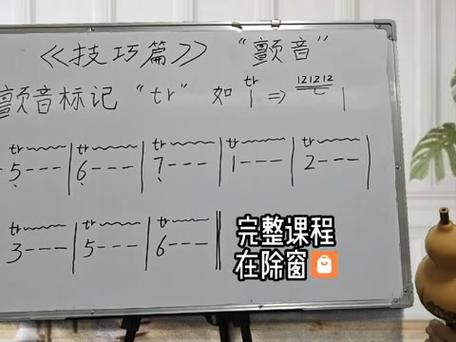 《技巧篇》 “颤音”
颤音标记“tr” 如 tr 1 ⇒ 121212 |
tr 5 - - - | tr 6 - - - | tr 7 - - - | tr 1 - - - | tr 2 - - - |
tr 3 - - - | tr 5 - - - | tr 6 - - - ‖
完整课程
在除窗